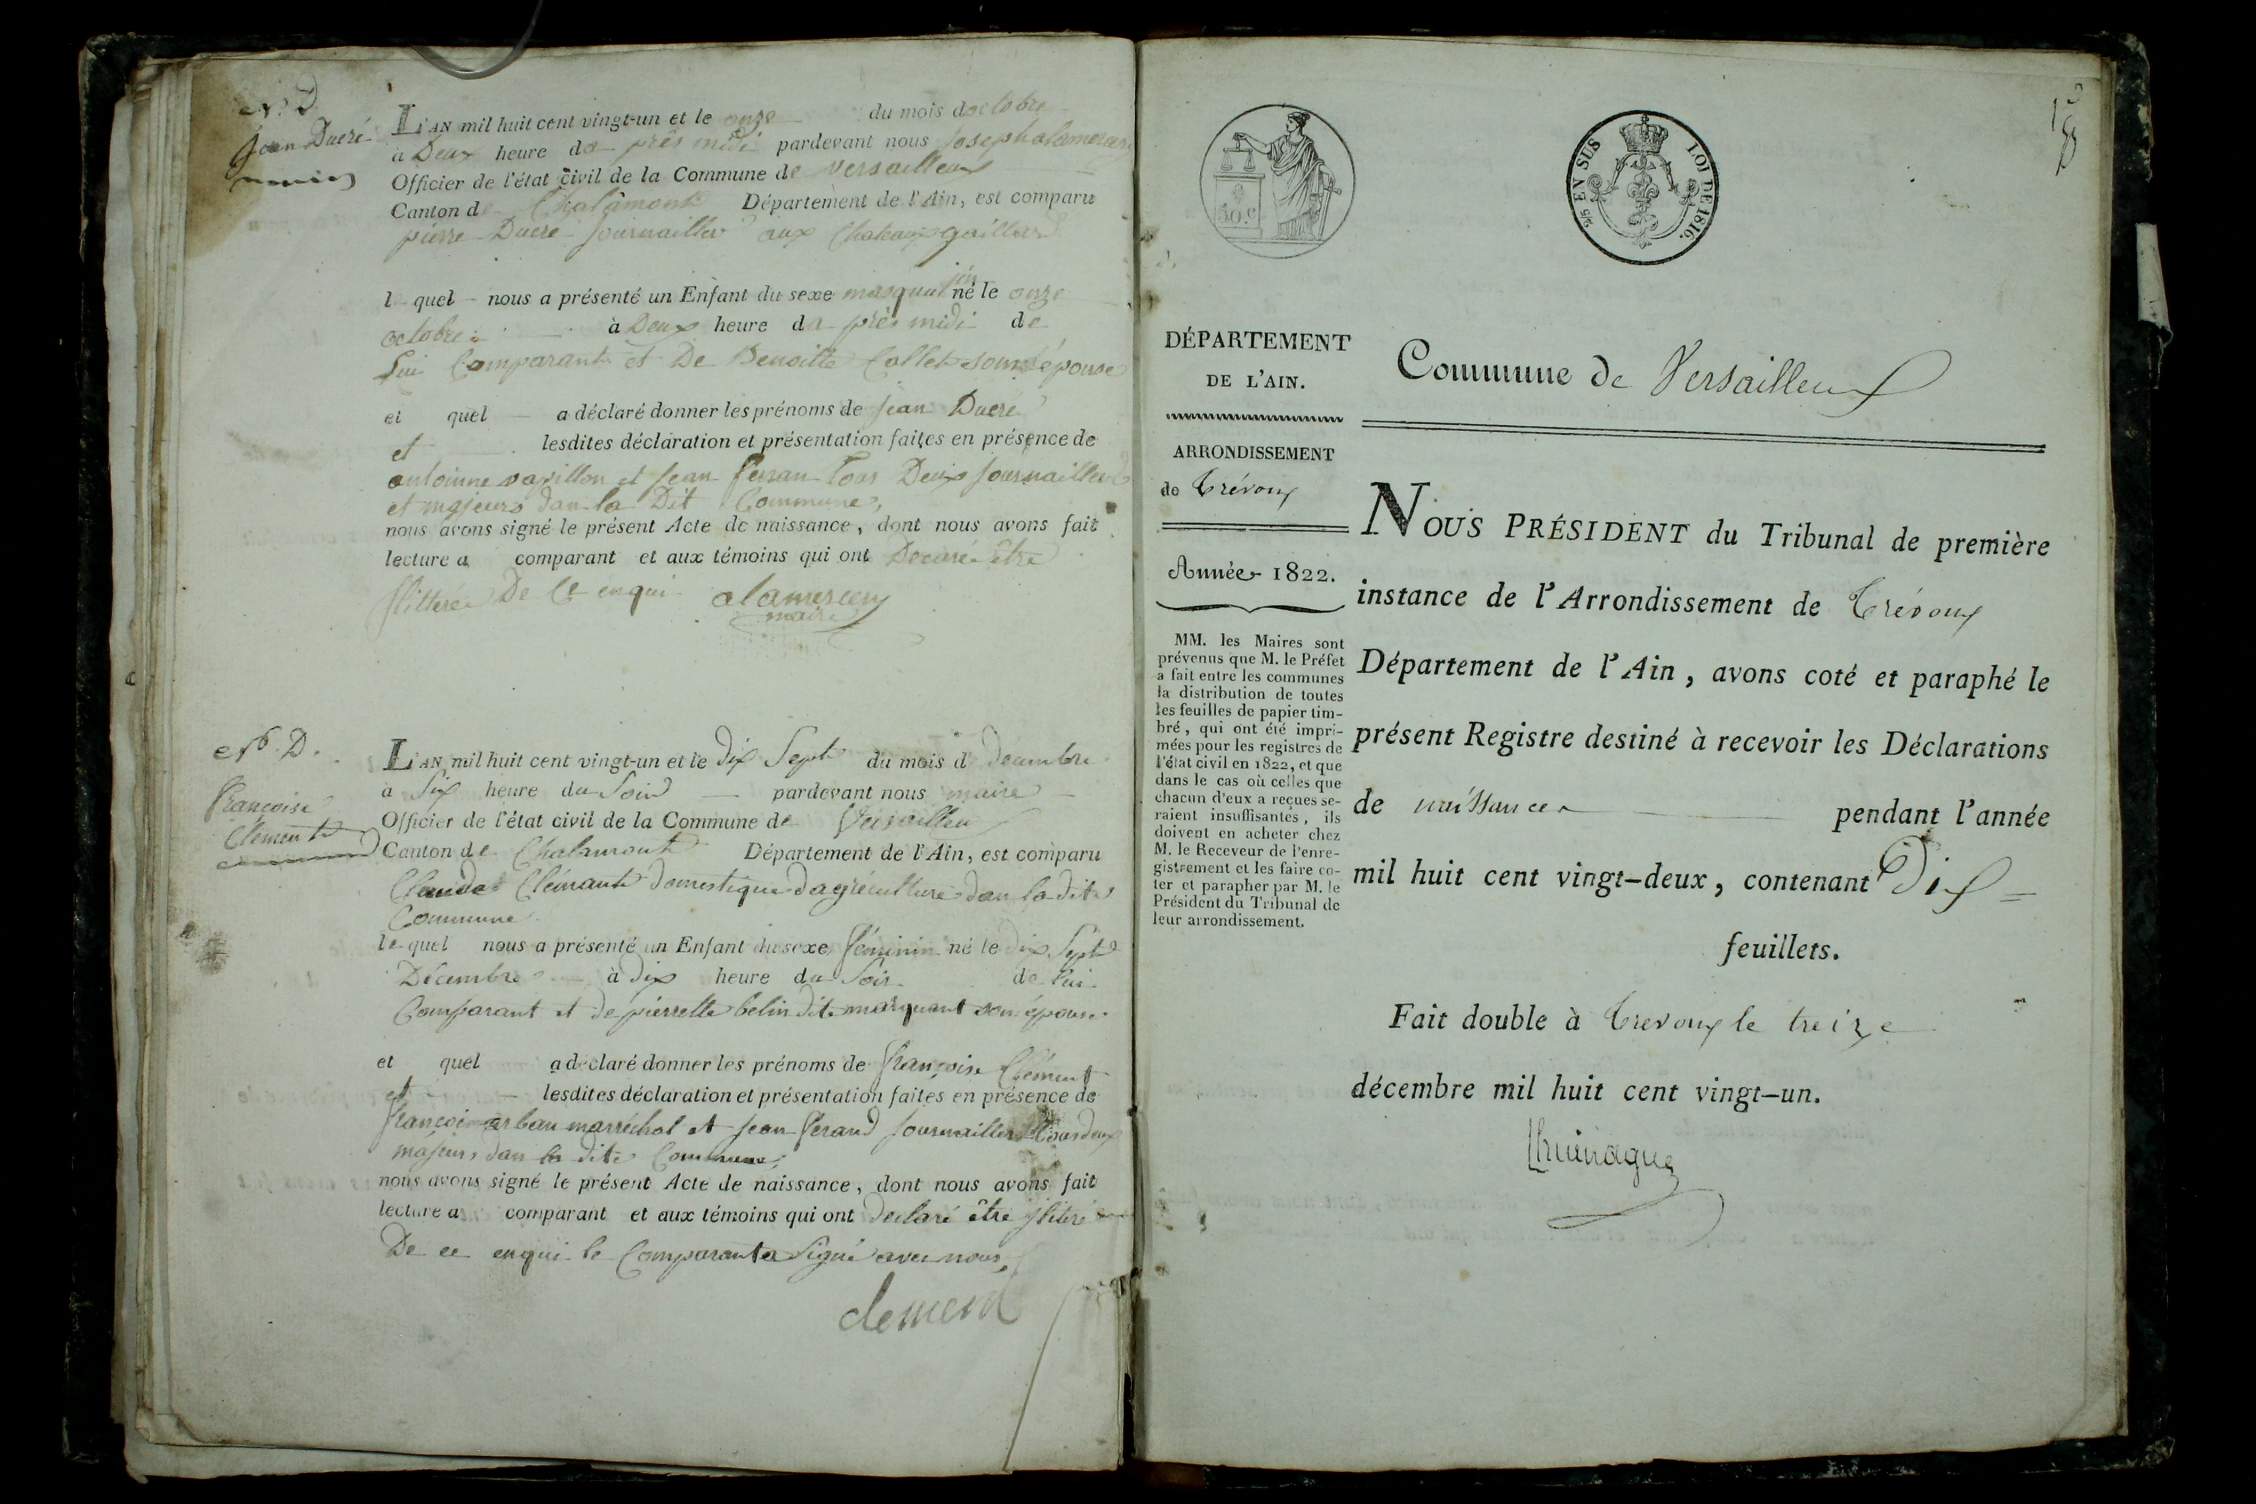 Jean Ducré
L'AN mil huit cent vingt-un et le onze du mois doctobre
à Deux heure da près midi pardevant nous joseph alamercery
Officier de l'état civil de la Commune de Versailleux
Canton de Chalamont Département de l'Ain, est comparu
pierre Ducré journaillier aux Chateaux gaillard
l quel nous a présenté un Enfant du sexe masqulin né le onze
octobre à Deux heure da près midi de
Lui Comparant et De Benoitte Collet sonn épouse
et quel a déclaré donner les prénoms de jean Ducré
et lesdites déclaration et présentation faites en présence de
antoinne varillon et jean ferran tous Deux journaillers
et majeurs dan la Dit Commune,
nous avons signé le présent Acte de naissance, dont nous avons fait
lecture a comparant et aux témoins qui ont Declaré être
jlitteré De Ce enqui alamercery
maire
N 6. D.
françoise
Clement
L'AN mil huit cent vingt-un et le Dix Sept du mois d Decembre
à Six heure du Soir pardevant nous maire
Officier de l'état civil de la Commune de Versailleux
Canton de Chalamont Département de l'Ain, est comparu
Claude Clémant domestique dagriculture dan la dite
Commune
le quel nous a présenté un Enfant du sexe féminin né le dix Sept
Décembre à dix heure du Soir de Lui
Comparant et de pierrette belin dite marquant son épouse
et quel a déclaré donner les prénoms de françoise Clément
et lesdites déclaration et présentation faites en présence de
françoi arban marréchal et jean ferand journaillier Tous deux
majeurs dan la dite Commune,
nous avons signé le présent Acte de naissance, dont nous avons fait
lecture a comparant et aux témoins qui ont declaré être jlitéré
De ce enqui le Comparant a Signé avec nous,
clement
50.C
25 EN SUS
LOI DE 1816.
DÉPARTEMENT
DE L'AIN.
ARRONDISSEMENT
de Trévoux
Année 1822.
MM. les Maires sont
prévenus que M. le Préfet
a fait entre les communes
la distribution de toutes
les feuilles de papier tim-
bré, qui ont été impri-
mées pour les registres de
l'état civil en 1822, et que
dans le cas où celles que
chacun d'eux a reçues se-
raient insuffisantes, ils
doivent en acheter chez
M. le Receveur de l'enre-
gistrement et les faire co-
ter et parapher par M. le
Président du Tribunal de
leur arrondissement.
Commune de Versailleux
NOUS PRÉSIDENT du Tribunal de première
instance de l'Arrondissement de Trévoux
Département de l'Ain, avons coté et paraphé le
présent Registre destiné à recevoir les Déclarations
de naissances pendant l'année
mil huit cent vingt-deux, contenant Dix
feuillets.
Fait double à Trevoux le treize
décembre mil huit cent vingt-un.